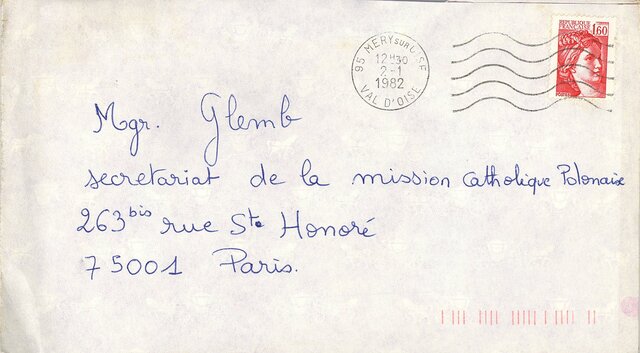 RÉPUBLIQUE
FRANÇAISE
1,60
95 MÉRY SUR OISE
12H30
2-1
1982
VAL D'OISE
Mgr. Glemb
secretariat de la mission Catholique Polonaise
263 bis rue Ste Honoré
75001 Paris.